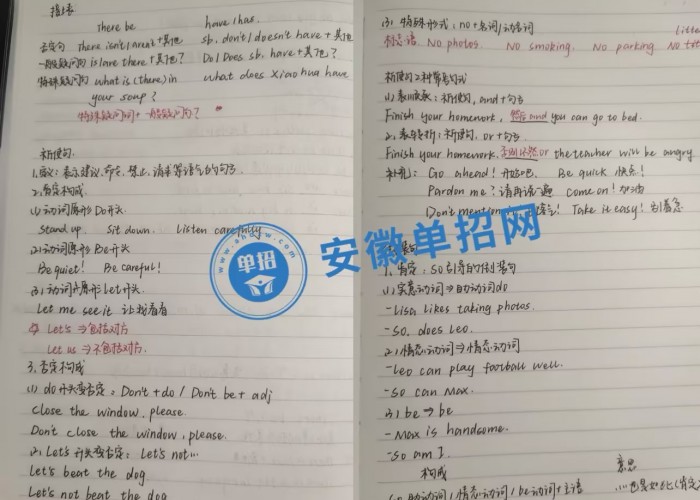 there be have/has.
否定句 There isn't/aren't+其他 sb. don't/doesn't have+其他
一般疑问句 is/are there+其他? Do/Does sb. have+其他?
特殊疑问句 what is (there) in what does Xiao hua have
your soup?
特殊疑问词+一般疑问句?
祈使句.
1.定义:表示建议.命令.禁止.请求等语气的句子.
2.肯定构成.
(1)动词原形Do开头
Stand up. Sit down. Listen carefully
(2)动词原形Be开头
Be quiet! Be careful!
(3)动词原形let开头.
Let me see it 让我看看
Let's ⇒包括对方
Let us ⇒不包括对方.
3.否定构成
(1) do开头变否定。Don't+do/Don't be+adj
close the window, please.
Don't close the window, please.
(2) Let's开头变否定: Let's not...
Let's beat the dog.
Let's not beat the dog
(3) 特殊形式: no+名词/动名词
标志语 No photos. No smoking. No parking.
祈使句2种常考句式
(1)表顺承: 祈使句, and+句子
Finish your homework, 然后and you can go to bed.
2.表转折: 祈使句, or+句子
Finish your homework. 否则不然or the teacher will be angry
补充: Go ahead! 开始吧. Be quick 快点!
Pardon me? 请再说一遍 come on! 加油
Don't mention Take it easy! 别着急
1.肯定: so引导的倒装句
(1)实意动词⇒助动词do
-Lisa likes taking photos.
-So does Leo.
2)情态动词⇒情态动词
-Leo can play football well.
-So can Max.
3) be ⇒ be
-Max is handsome.
-So am I.
构成 意思
So 助动词/情态动词/be动词+主语 ...也是如此(肯定
安徽单招网
www.ahdzw.com
单招